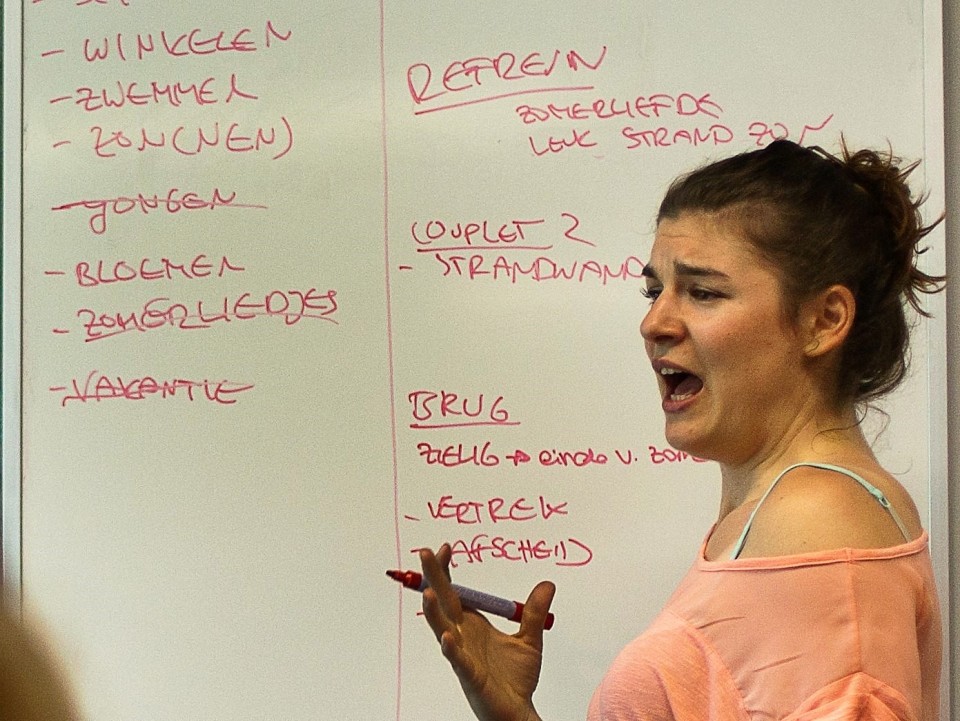 - WINKELEN
- ZWEMMEN
- ZON(NEN)
- JONGEN
- BLOEMEN
- ZOMERLIEDJES
- VAKANTIE
REFREIN
ZOMERLIEFDE
LEUK STRAND ZON
COUPLET 2
- STRANDWAND
BRUG
ZIELIG → einde v. zome
- VERTREK
- AFSCHEID